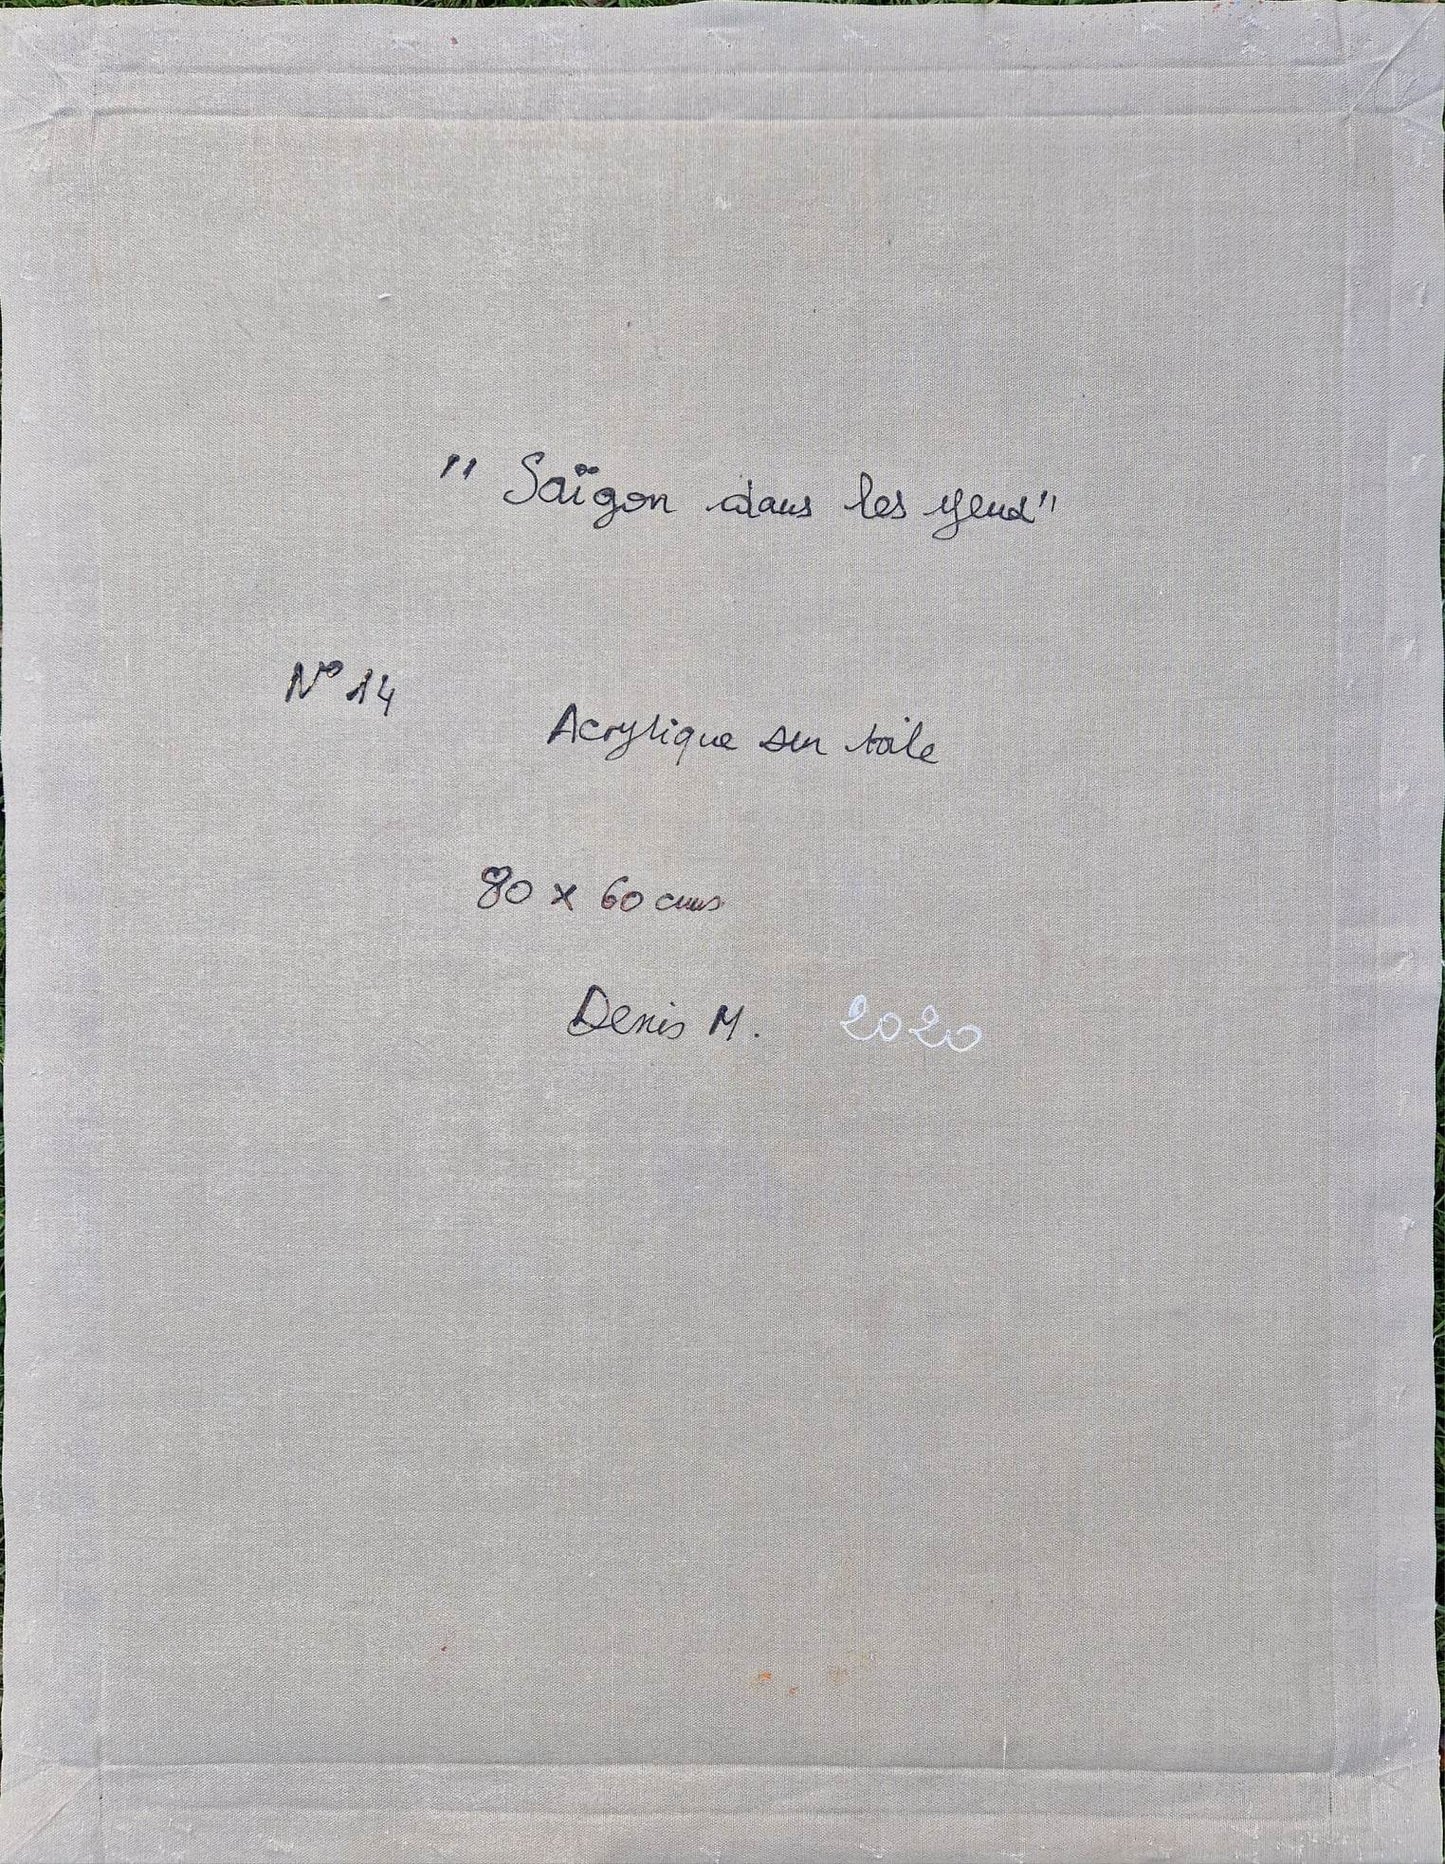 "Saïgon dans les yeux"
N° 14
Acrylique sur toile
80 x 60 cms
Denis M. 2020